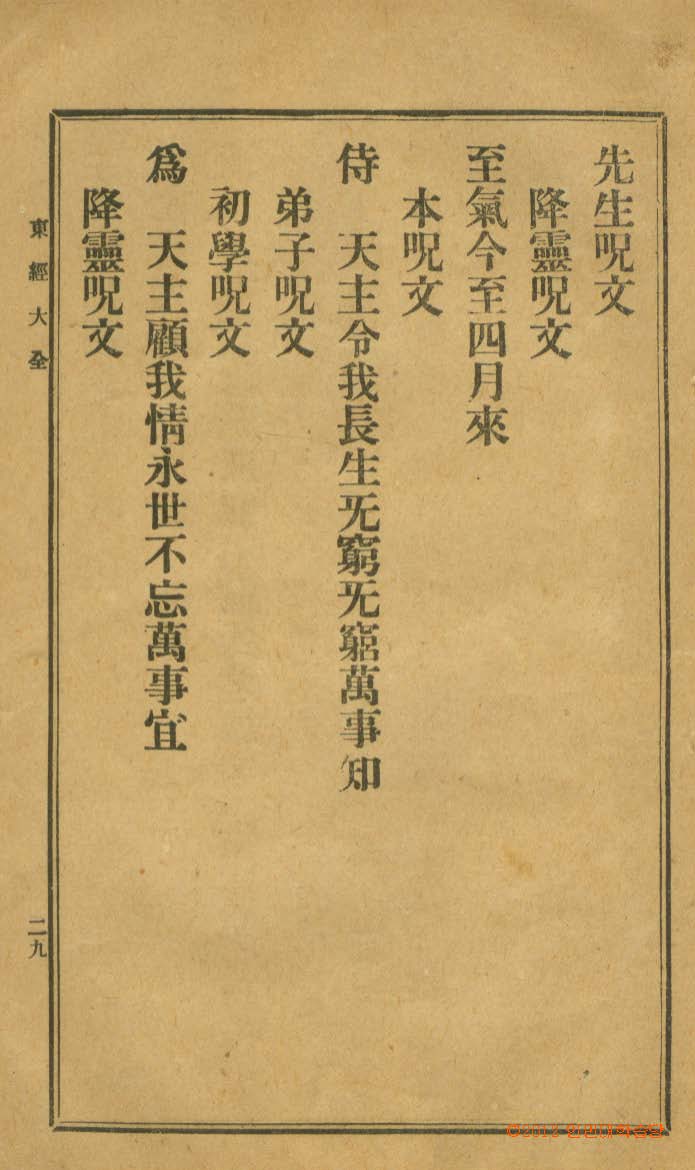 先生呪文
降靈呪文
至氣今至四月來
本呪文
侍　天主令我長生旡窮旡窮萬事知
弟子呪文
初學呪文
爲　天主顧我情永世不忘萬事宜
降靈呪文
東經大全
二九